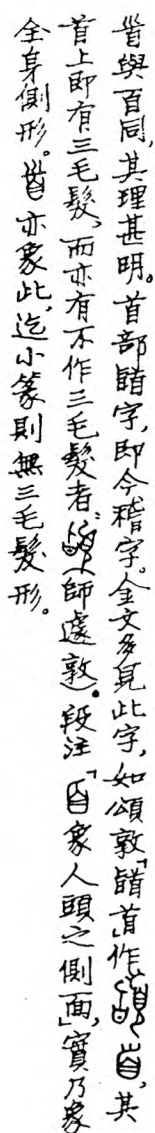 𦣻與百同，其理甚明。首部䭫字，即今稽字。金文多見此字，如頌敦「䭫首」作，其
首上即有三毛髮，而亦有不作三毛髮者：（師遽敦）。段注「象人頭之側面」，實乃象
全身側形。亦象此，迄小篆則無三毛髮形。